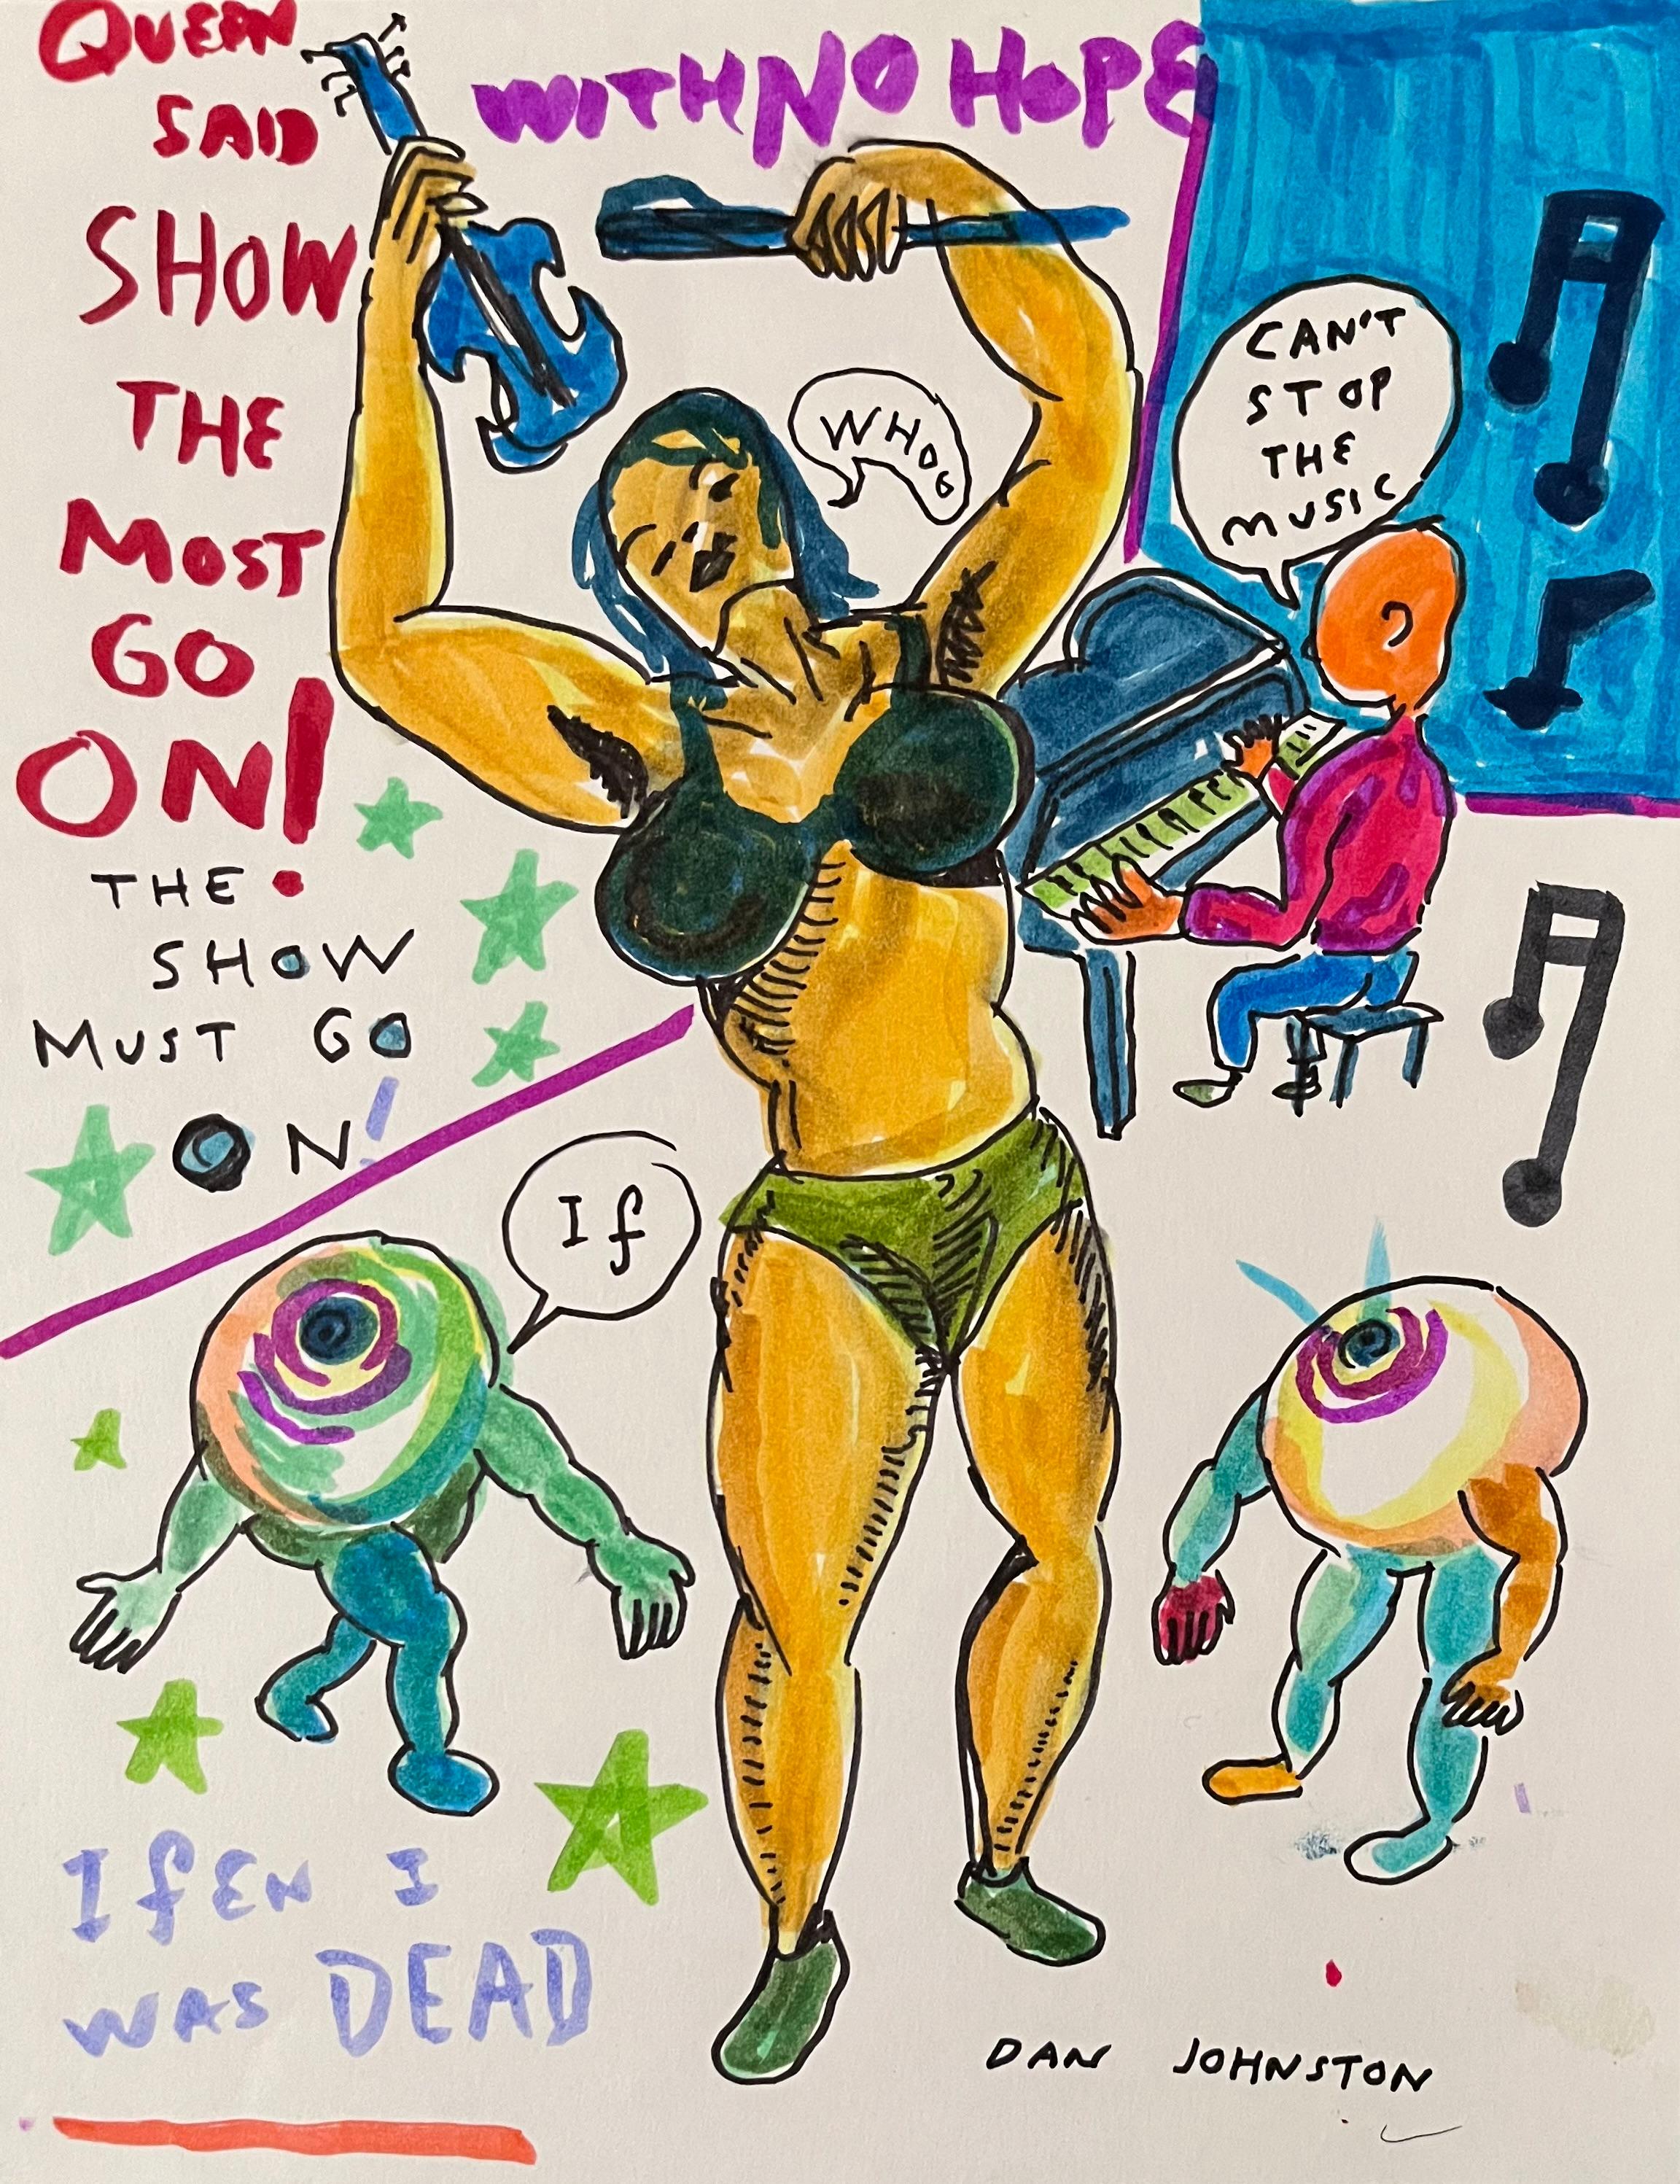 QUEEN
SAID
SHOW
THE
MOST
GO
ON!
THE
SHOW
MUST GO
ON!
WITH NO HOPE
WHOG
CAN'T
STOP
THE
MUSIC
If
IfEN I
WAS DEAD
DAN JOHNSTON